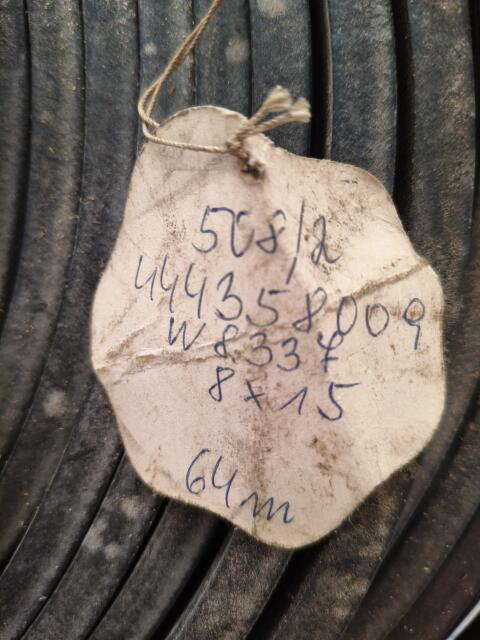 508/2
444358009
W 8337
8x15
64m